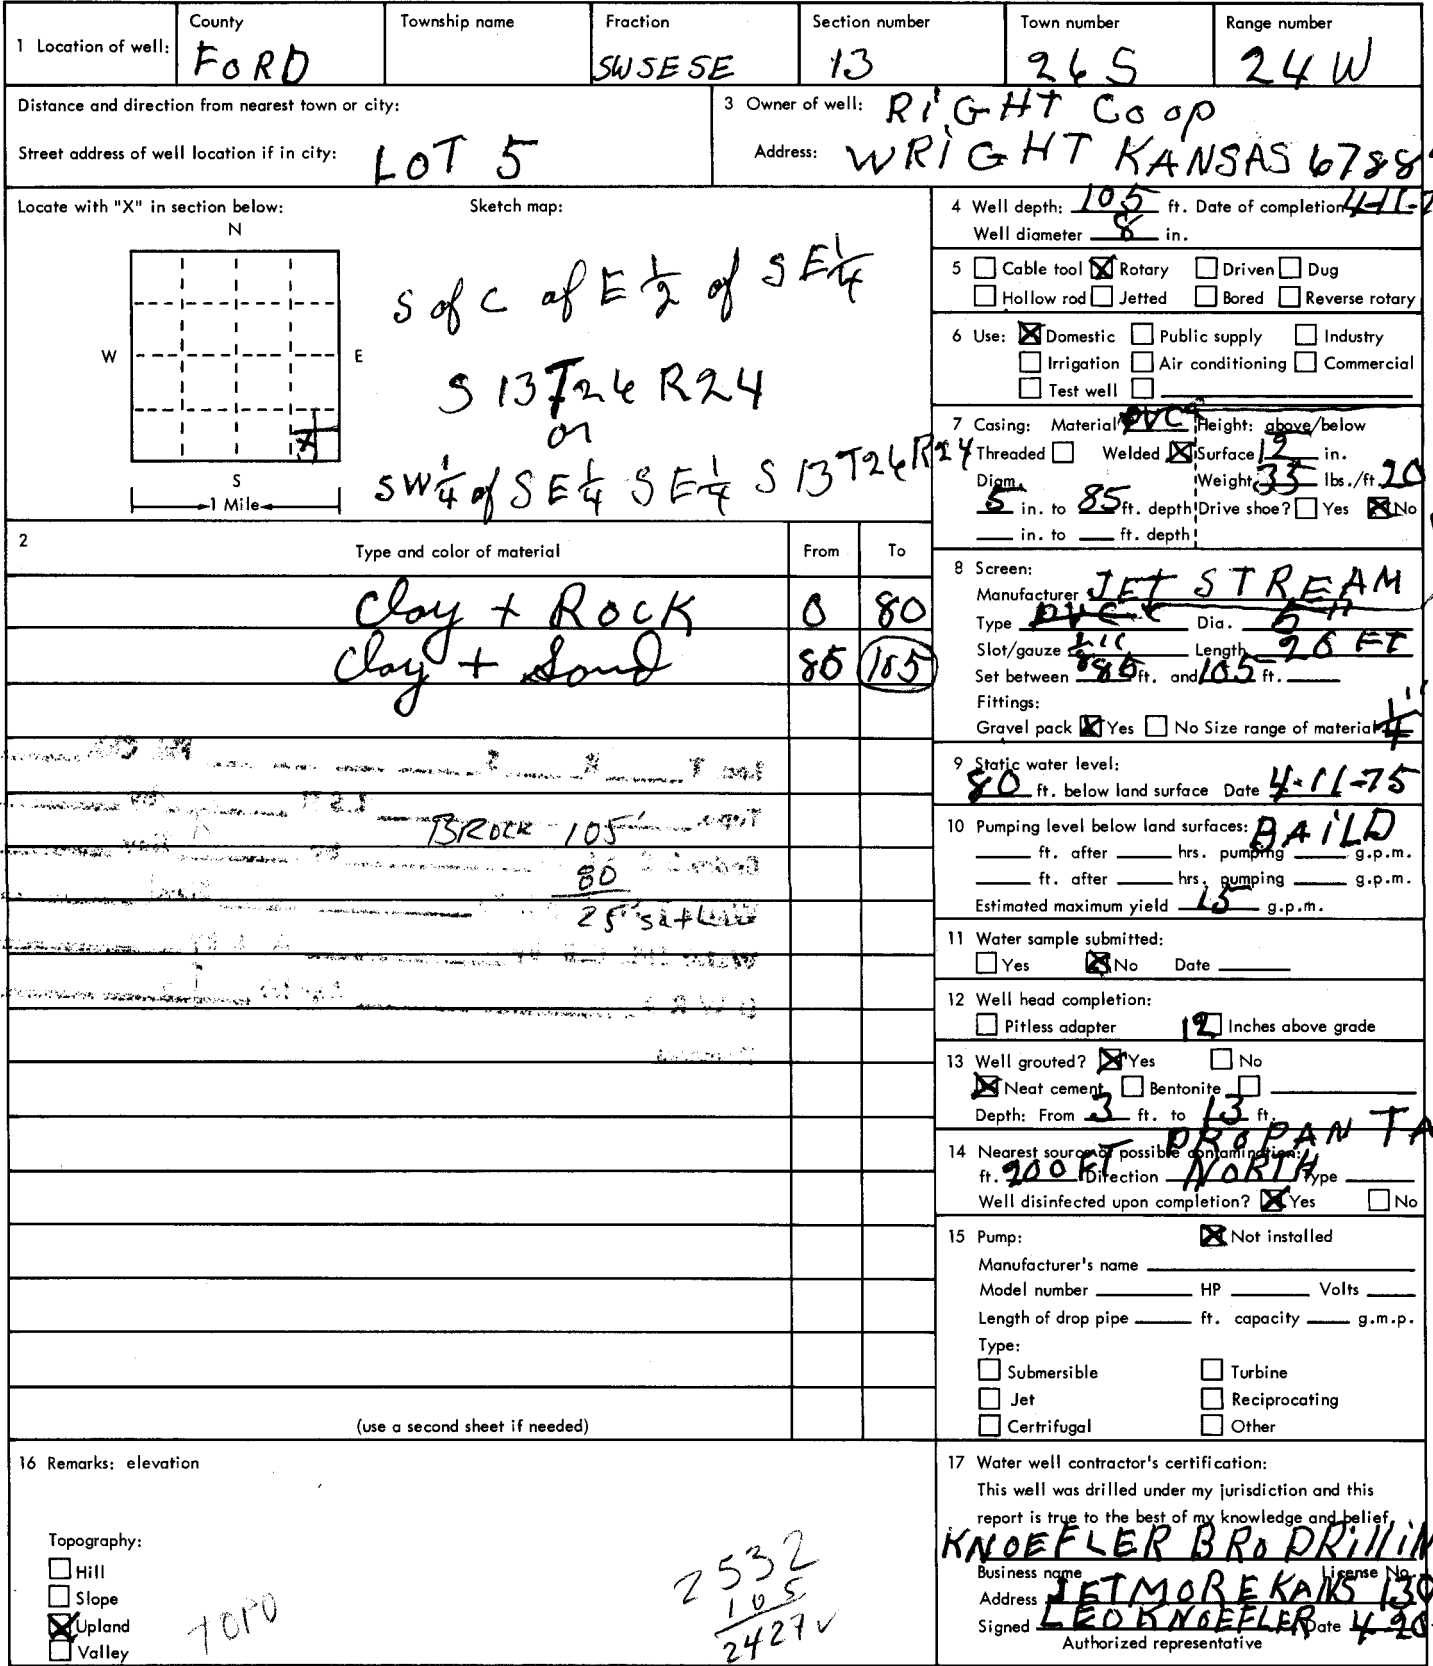 1 Location of well:
County
FORD
Township name
Fraction
SWSESE
Section number
13
Town number
26S
Range number
24W
Distance and direction from nearest town or city:
Street address of well location if in city: LOT 5
3 Owner of well: RiGHT Coop
Address: WRiGHT KANSAS 6788
Locate with "X" in section below:
Sketch map:
N
W
E
S
1 Mile
X
S of C of E 1/2 of SE 1/4
S 13 T26 R24
or
SW 1/4 of SE 1/4 SE 1/4 S 13 T26 R24
2
Type and color of material
From
To
Clay + ROCK 0 80
Clay + Sand 85 105
BROCK 105'
80
25' sat
(use a second sheet if needed)
4 Well depth: 105 ft. Date of completion 4-11-7
Well diameter 8 in.
5 ☐ Cable tool ☒ Rotary ☐ Driven ☐ Dug
☐ Hollow rod ☐ Jetted ☐ Bored ☐ Reverse rotary
6 Use: ☒ Domestic ☐ Public supply ☐ Industry
☐ Irrigation ☐ Air conditioning ☐ Commercial
☐ Test well ☐
7 Casing: Material PVC Height: above/below
Threaded ☐ Welded ☒ Surface 12 in.
Diam. Weight 35 lbs./ft. 20
5 in. to 85 ft. depth Drive shoe? ☐ Yes ☒ No
in. to ft. depth
8 Screen:
Manufacturer JET STREAM
Type PVC Dia. 5"
Slot/gauze 1/8" Length 20 FT
Set between 85 ft. and 105 ft.
Fittings:
Gravel pack ☒ Yes ☐ No Size range of material 1/4"
9 Static water level:
80 ft. below land surface Date 4-11-75
10 Pumping level below land surfaces: BAiLD
ft. after hrs. pumping g.p.m.
ft. after hrs. pumping g.p.m.
Estimated maximum yield 15 g.p.m.
11 Water sample submitted:
☐ Yes ☒ No Date
12 Well head completion:
☐ Pitless adapter 12 ☐ Inches above grade
13 Well grouted? ☒ Yes ☐ No
☒ Neat cement ☐ Bentonite ☐
Depth: From 3 ft. to 13 ft.
PROPAN TA
14 Nearest source of possible contamination:
ft. 200 FT Direction NORTH Type
Well disinfected upon completion? ☒ Yes ☐ No
15 Pump: ☒ Not installed
Manufacturer's name
Model number HP Volts
Length of drop pipe ft. capacity g.m.p.
Type:
☐ Submersible ☐ Turbine
☐ Jet ☐ Reciprocating
☐ Certrifugal ☐ Other
16 Remarks: elevation
Topography:
☐ Hill
☐ Slope
☒ Upland
☐ Valley
TOPO
2532
105
2427 ✓
17 Water well contractor's certification:
This well was drilled under my jurisdiction and this
report is true to the best of my knowledge and belief
KNOEFLER BRO DRilliN
Business name License No.
Address JETMORE KANS 130
Signed LEO KNOEFLER Date 4-20
Authorized representative